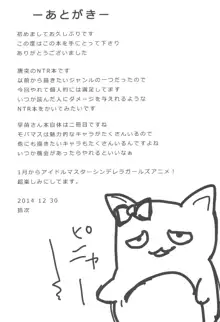 ーあとがきー
初めましてお久しぶりです
この度はこの本を手にとって下さり
ありがとうございました
唐突のNTR本です
以前から描きたいジャンルの一つだったので
今回やれて個人的には満足してます
いつか読んだ人にダメージを与えれるような
NTRをかいてみたいです
早苗さん本自体は二冊目ですね
モバマスは魅力的なキャラがたくさんいるので
他にも描きたいキャラもたくさんいるんですよね
いつか機会があったらやれるといいなぁ
1月からアイドルマスターシンデレラガールズアニメ!
超楽しみにしてます。
2014 12 30
ピニャー